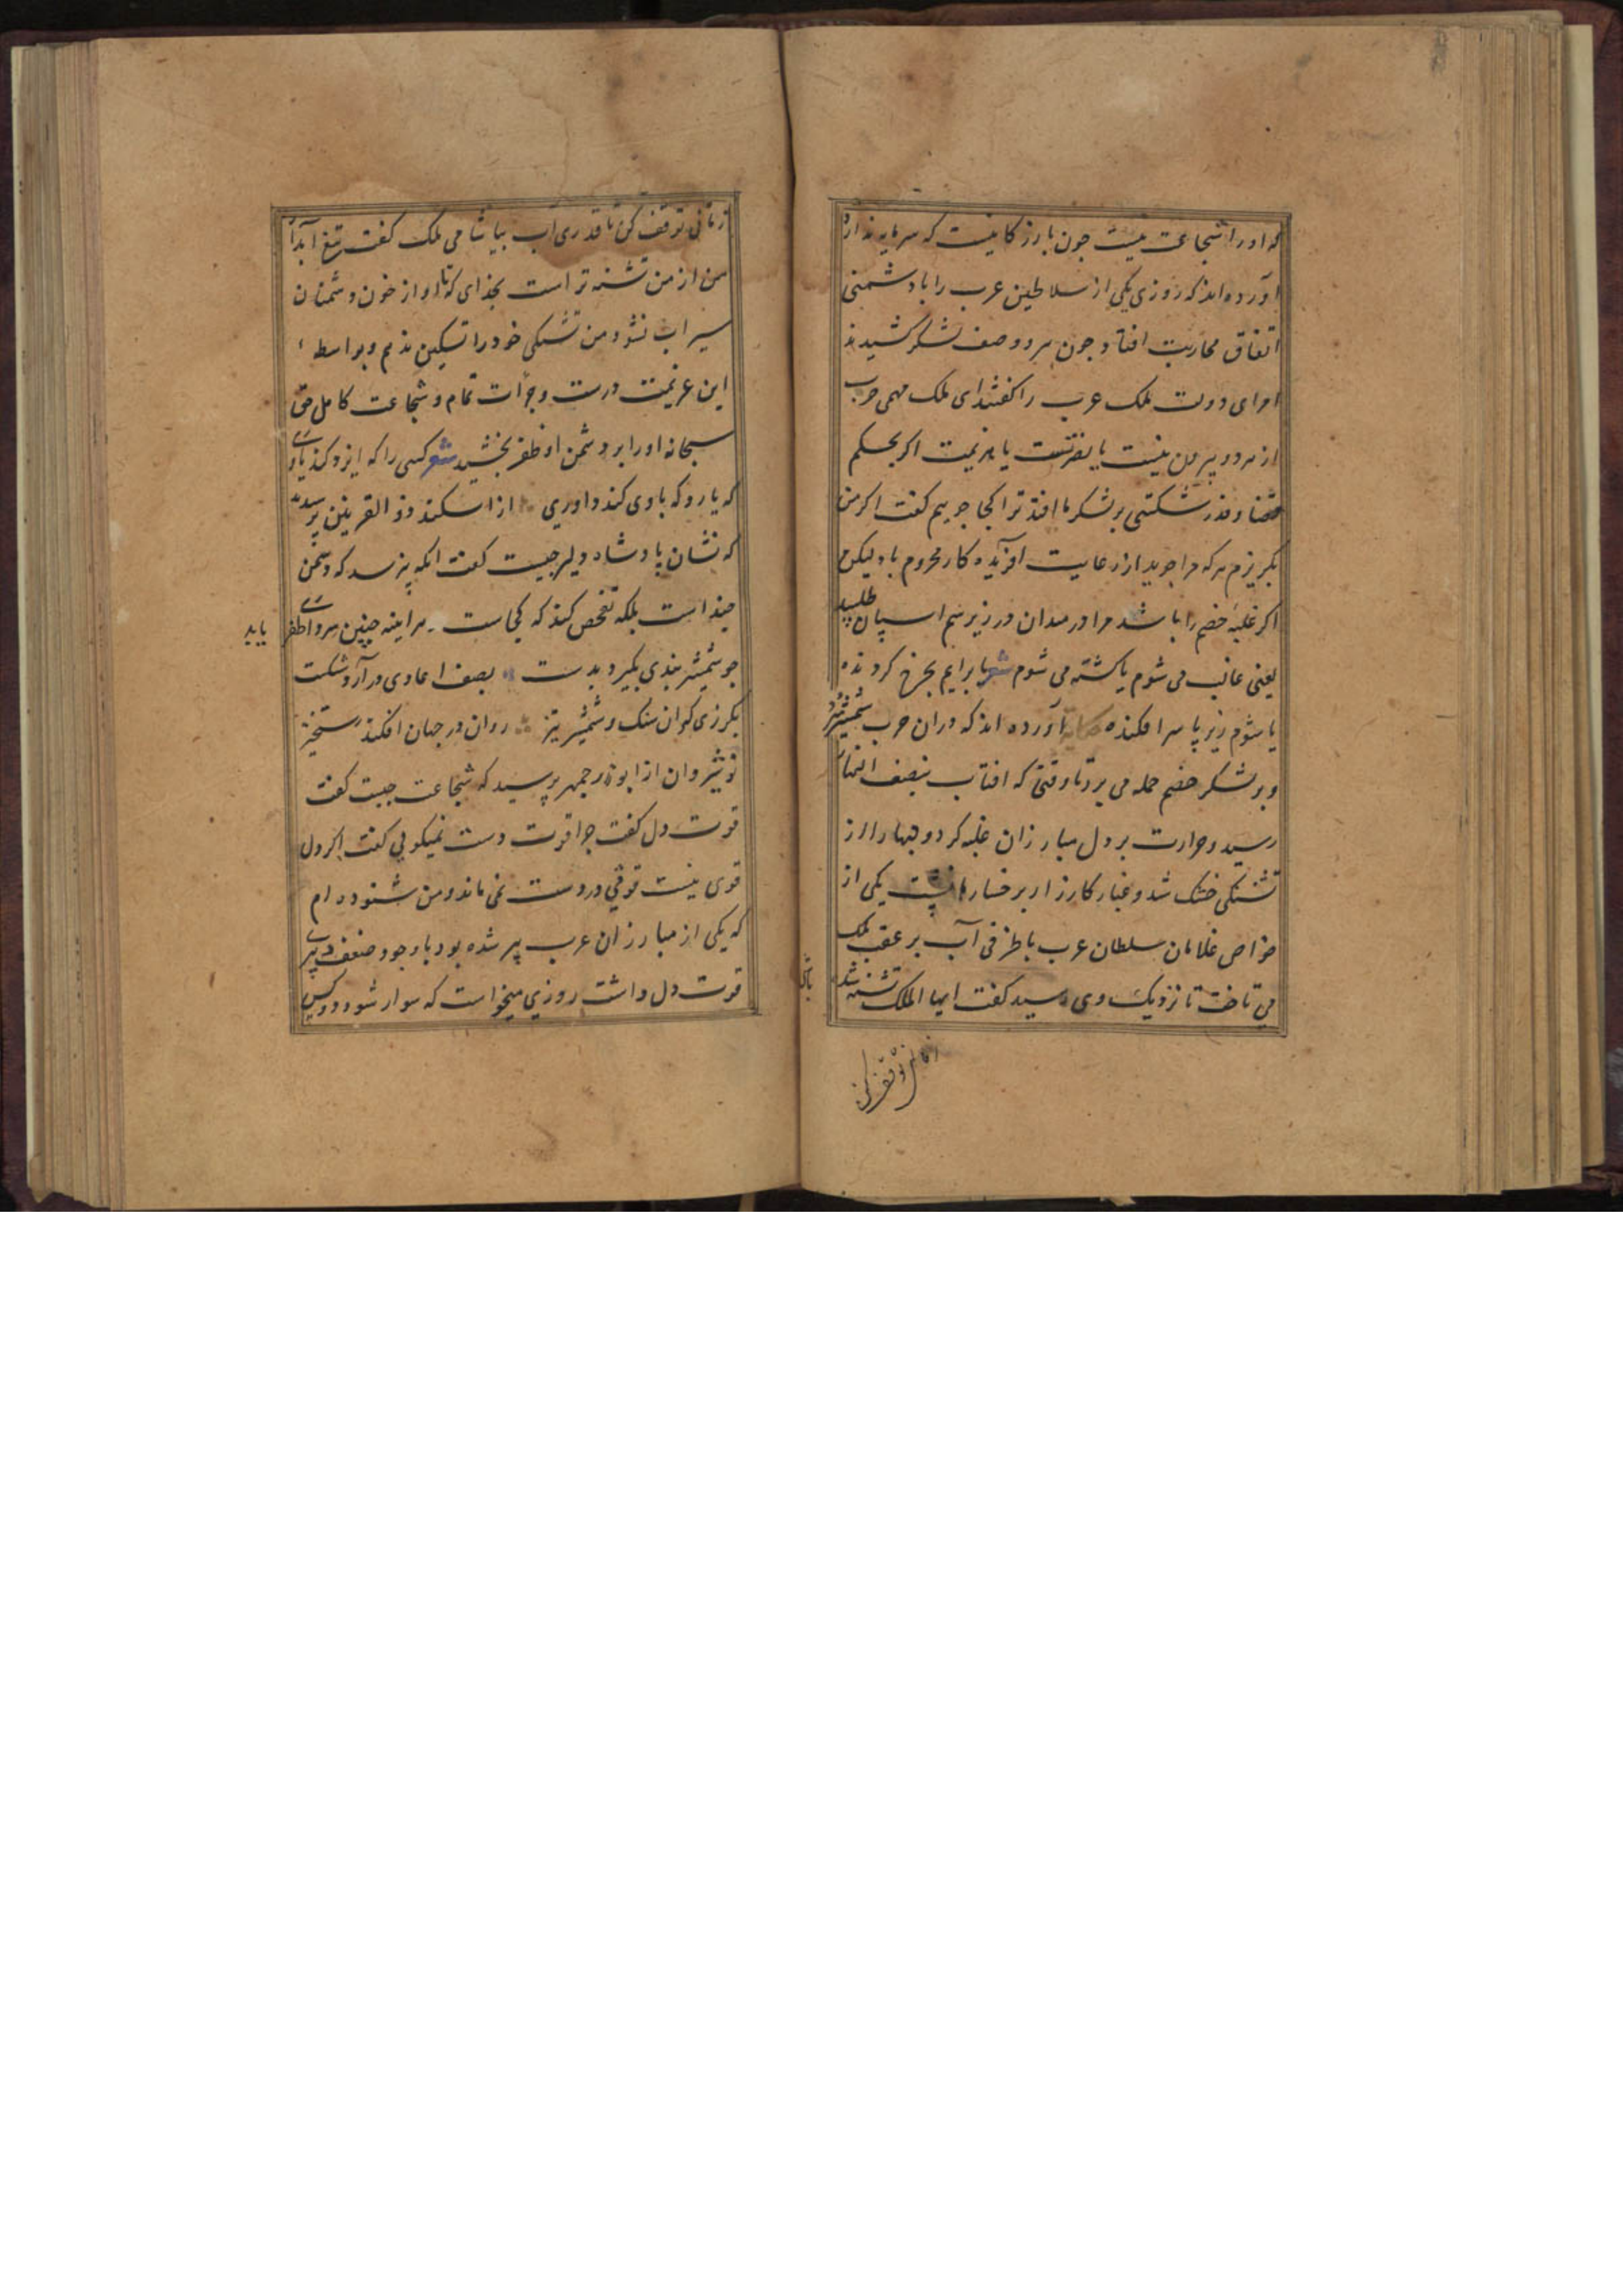 که اورا شجاعت نیست چون بازرکانیست که سرمایه ندارد
آورده اند که روزی یکی از سلاطین عرب را با دشمنی
اتفاق محاربت افتاد و چون هر دو صف لشکر کشیدند
امرای دولت ملک عرب را کفتند ای ملک مهمی حرب
از هر دو بیرون نیست یا نصرتست یا هزیمت اکر بحکم
قضا و قدر شکستی بر لشکر ما افتد ترا کجا جوییم کفت اکر من
بکریزم هر که مرا جوید از رعایت آفریده کار محروم باد لیکن
اکر غلبه خصم را باشد مرا در میدان در زیر سم اسپان طلبید
یعنی غالب می شوم یا کشته می شوم شعر یا برایم بچرخ کردنده
یا شوم زیر پا سر افکنده حکایة آورده اند که در ان حرب شمشیر
و بر لشکر خصم حمله می برد تا وقتی که افتاب بنصف النهار
رسید و حرارت بر دل مبارزان غلبه کرد و لبها را از
تشنکی خشک شد و غبار کارزار بر خسارها نشست یکی از
خواص غلامان سلطان عرب با ظرفی آب بر عقب ملک
می تاخت تا نزدیک وی رسید کفت ایها الملک تشنه شد
زمانی توقف کن
زمانی توقف کن تا قدری آب بیاشامی ملک کفت تیغ آبدار
من از من تشنه تر است بخدای که تا او از خون دشمنان
سیراب نشود من تشنکی خود را تسکین ندهم و بواسطه
این عزیمت درست و جرأت تمام و شجاعت کامل حق
سبحانه اورا بر دشمن او ظفر بخشید شعر کسی را که ایزد کند یاوری
که یارد که با وی کند داوری از اسکندر ذو القرنین پرسیدند
که نشان پادشاه دلیر چیست کفت انکه نپرسد که دشمن
چند است بلکه تفحص کند که کجاست هر اینه چنین سروری ظفر
یابد
چو شمشیر هندی بکیرد بدست بصف اعادی در آرد شکست
بکرزی کران سنک و شمشیر تیز روان در جهان افکند رستخیز
نوشیروان از ابوذرجمهر پرسید که شجاعت چیست کفت
قوت دل کفت چرا قوت دست نمیکویی کفت اکر دل
قوی نیست قوتی در دست نمی ماند و من شنوده ام
که یکی از مبارزان عرب پیر شده بود با وجود ضعف پیری
قوت دل داشت روزی میخواست که سوار شود دو کس